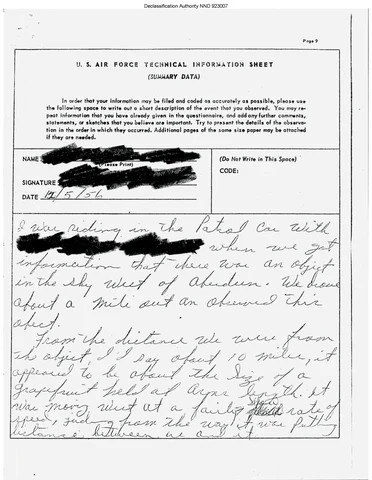 Declassification Authority NND 923007
Page 9
U. S. AIR FORCE TECHNICAL INFORMATION SHEET
(SUMMARY DATA)
In order that your information may be filed and coded as accurately as possible, please use
the following space to write out a short description of the event that you observed. You may re-
peat information that you have already given in the questionnaire, and add any further comments,
statements, or sketches that you believe are important. Try to present the details of the observa-
tion in the order in which they occurred. Additional pages of the same size paper may be attached
if they are needed.
NAME
(Please Print)
SIGNATURE
DATE 12/5/56
(Do Not Write in This Space)
CODE:
I was riding in the Patrol Car With
when we got
information that there was an object
in the sky West of Aberdeen. We drove
about a mile out an observed this
obect.
From the distance we were from
the object, I say about 10 miles, it
appeared to be about the size of a
grapefruit held at Arms length. It
was moving West at a fairly slow rate of
speed, judging from the way it was putting
distance between us and it